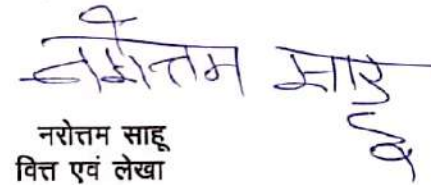 नरोत्तम साहू
नरोत्तम साहू
वित्त एवं लेखा